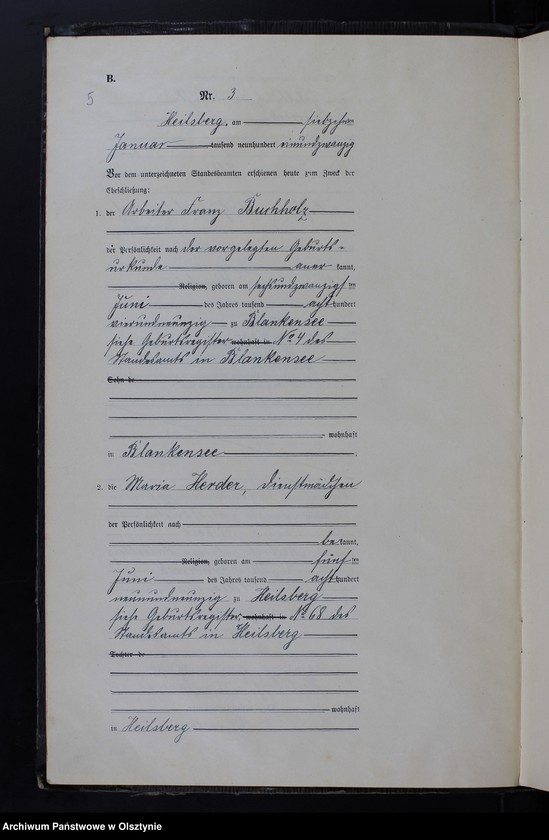 B.
5
Nr. 3
Heilsberg, am siebzehnten
Januar tausend neunhundert einundzwanzig
Vor dem unterzeichneten Standesbeamten erschienen heute zum Zweck der
Eheschließung:
1. der Arbeiter Franz Buchholz
der Persönlichkeit nach der vorgelegten Geburts-
urkunde anerkannt,
Religion, geboren am sechsundzwanzigsten
Juni des Jahres tausend achthundert
vierundneunzig zu Blankensee
siehe Geburtsregister wohnhaft in No 4 des
Standesamts in Blankensee
Sohn de
wohnhaft
in Blankensee.
2. die Maria Herder, Dienstmädchen
der Persönlichkeit nach
bekannt,
Religion, geboren am fünften
Juni des Jahres tausend achthundert
neunundneunzig zu Heilsberg
siehe Geburtsregister, wohnhaft in No 68 des
Standesamts in Heilsberg
Tochter de
wohnhaft
in Heilsberg
Archiwum Państwowe w Olsztynie